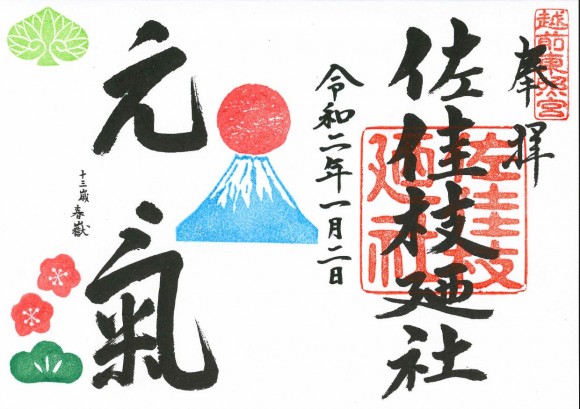 越前東照宮
奉拝
佐佳枝廼社
佐佳枝
廼社
令和二年一月二日
元氣
十三歳 春嶽